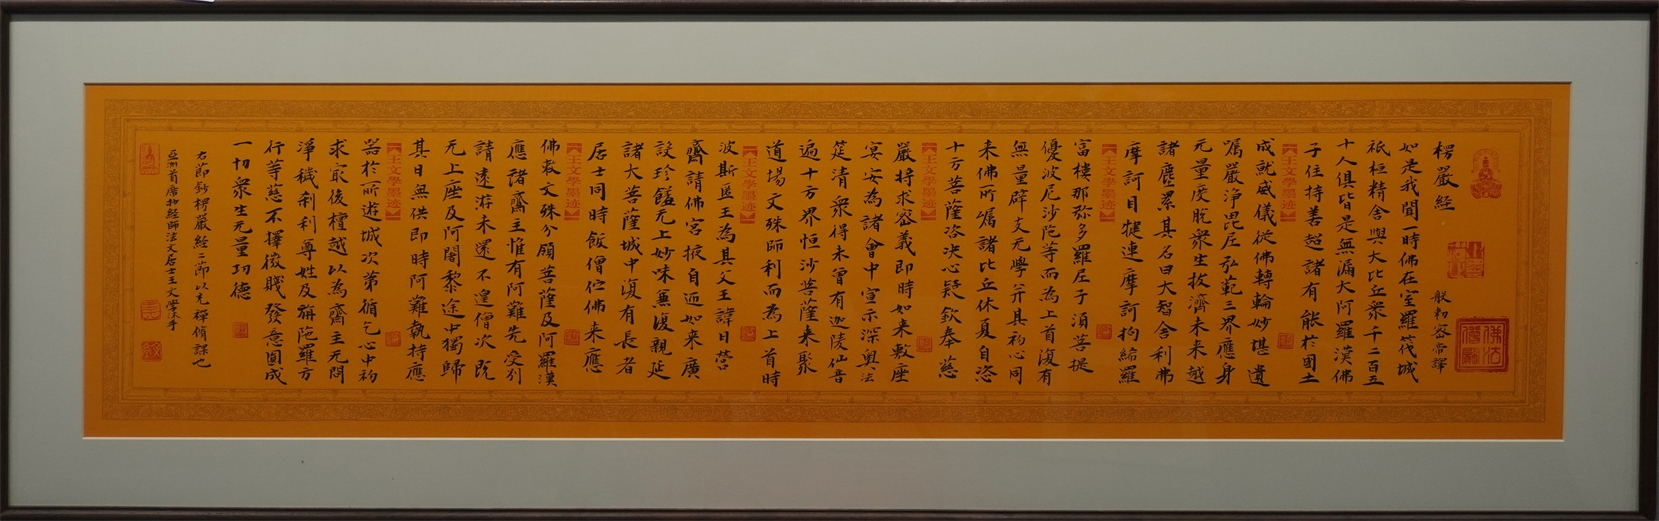 楞嚴經
般刺密帝譯
如是我聞一時佛在室羅筏城
祇桓精舍與大比丘衆千二百五
十人俱皆是無漏大阿羅漢佛
子住持善超諸有能於國土
成就威儀從佛轉輪妙堪遺
囑嚴淨毘尼弘範三界應身
无量度脱衆生拔濟未来越
諸塵累其名曰大智舍利弗
摩訶目犍連摩訶拘絺羅
富樓那弥多羅尼子湏菩提
優波尼沙陀等而為上首復有
無量辟支无學并其初心同
来佛所囑諸比丘休夏自恣
十方菩薩咨决心疑欽奉慈
嚴将求密義即時如来敷座
宴安為諸會中宣示深奥法
筵清衆得未曾有迦陵仙音
遍十方界恒沙菩薩来聚
道場文殊師利而為上首時
波斯匿王為其父王諱日營
齋請佛宮掖自迎如来廣
設珍饈无上妙味兼復親延
諸大菩薩城中復有長者
居士同時飯僧佇佛来應
佛敕文殊分領菩薩及阿羅漢
應諸齋主惟有阿難先受别
請遠游未還不遑僧次既
无上座及阿闍黎途中獨歸
其日無供即時阿難執持應
器於所遊城次第循乞心中初
求最後檀越以為齋主无問
淨穢刹利尊姓及旃陀羅方
行等慈不擇微賤發意圓成
一切衆生无量功德
右節鈔楞嚴經二節以充禪脩課也
亞洲首席抄經師法天居士王文學沐手
【王文學墨迹】
【王文學墨迹】
【王文學墨迹】
【王文學墨迹】
【王文學墨迹】
【王文學墨迹】
佛法僧寶